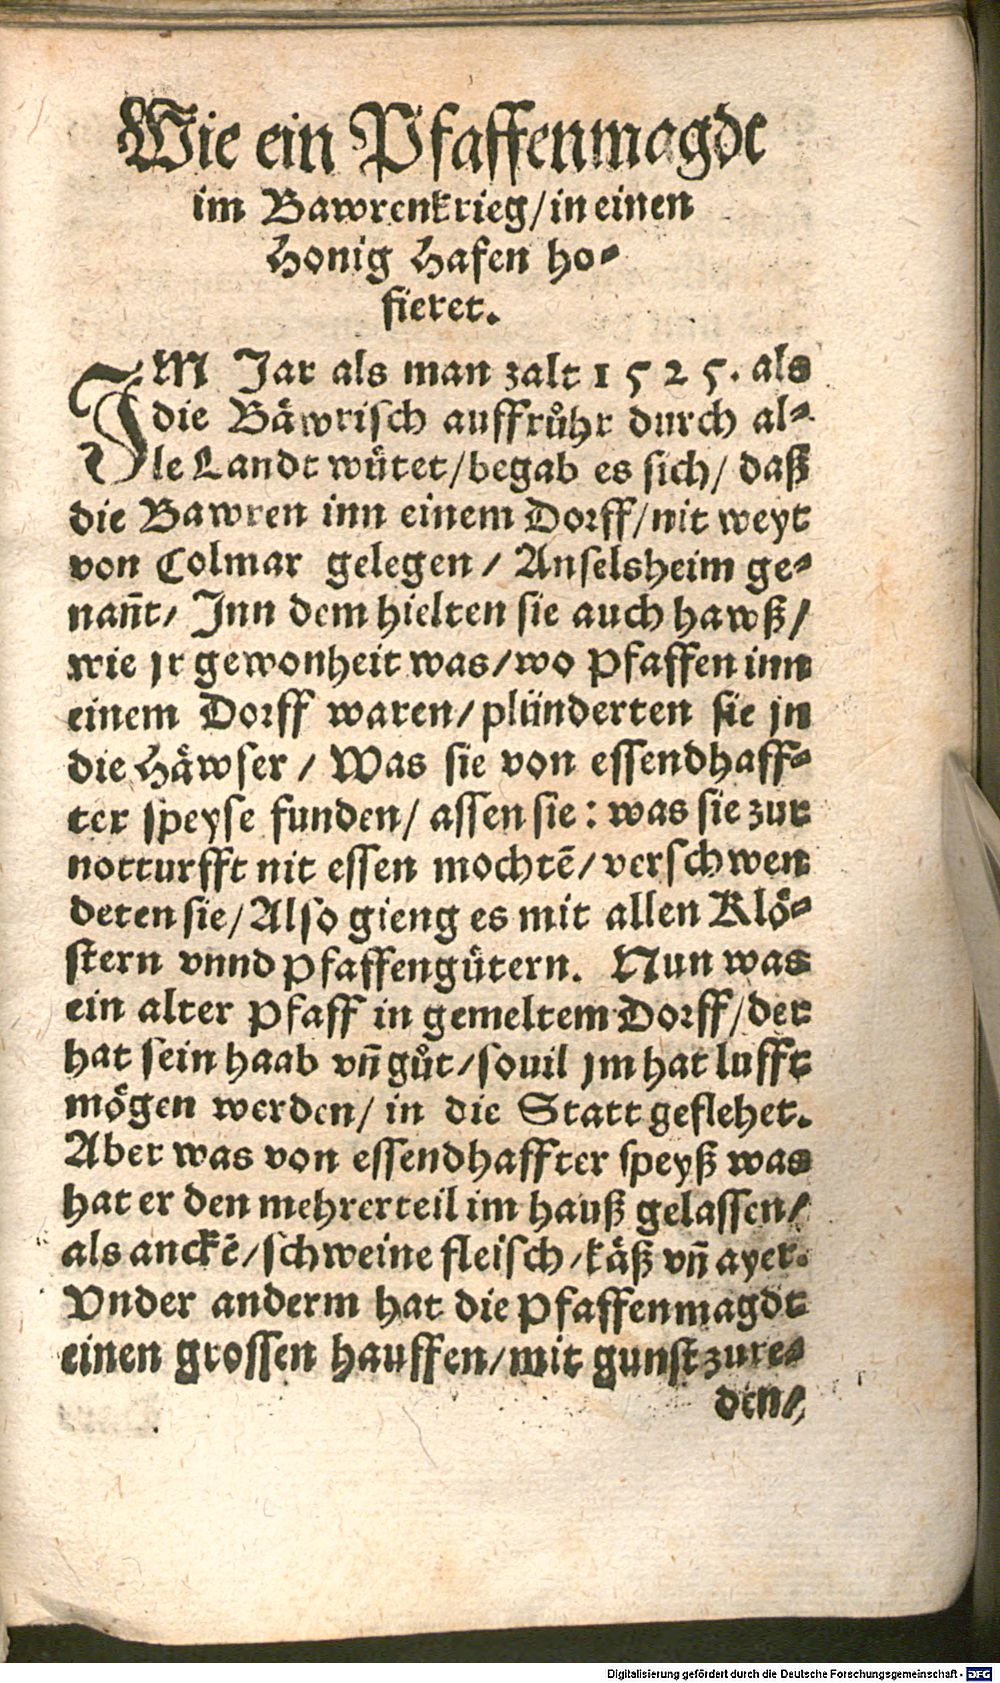 Wie ein Pfaffenmagdt
im Bawrenkrieg/in einen
Honig Hafen ho⸗
fieret.
IM Jar als man zalt 1525. als
die Bäwrisch auffrůhr durch al⸗
le Landt wütet/begab es sich/ daß
die Bawren inn einem Dorff/nit weyt
von Colmar gelegen/ Anselsheim ge⸗
nañt/ Inn dem hielten sie auch hawß/
wie jr gewonheit was/wo Pfaffen inn
einem Dorff waren/plünderten sie jn
die Häwser/ Was sie von essendhaff⸗
ter speyse funden/ assen sie: was sie zur
notturfft nit essen mochtē/verschwen
deten sie/Also gieng es mit allen Klö⸗
stern vnnd Pfaffengütern. Nun was
ein alter Pfaff in gemeltem Dorff/der
hat sein haab vñ gůt/souil jm hat lufft
mögen werden/ in die Statt geflehet.
Aber was von essendhaffter speyß was
hat er den mehrerteil im hauß gelassen/
als anckē/schweine fleisch/käß vñ ayer.
Vnder anderm hat die Pfaffenmagdt
einen grossen hauffen/mit gunst zure⸗
den/
Digitalisierung gefördert durch die Deutsche Forschungsgemeinschaft - DFG